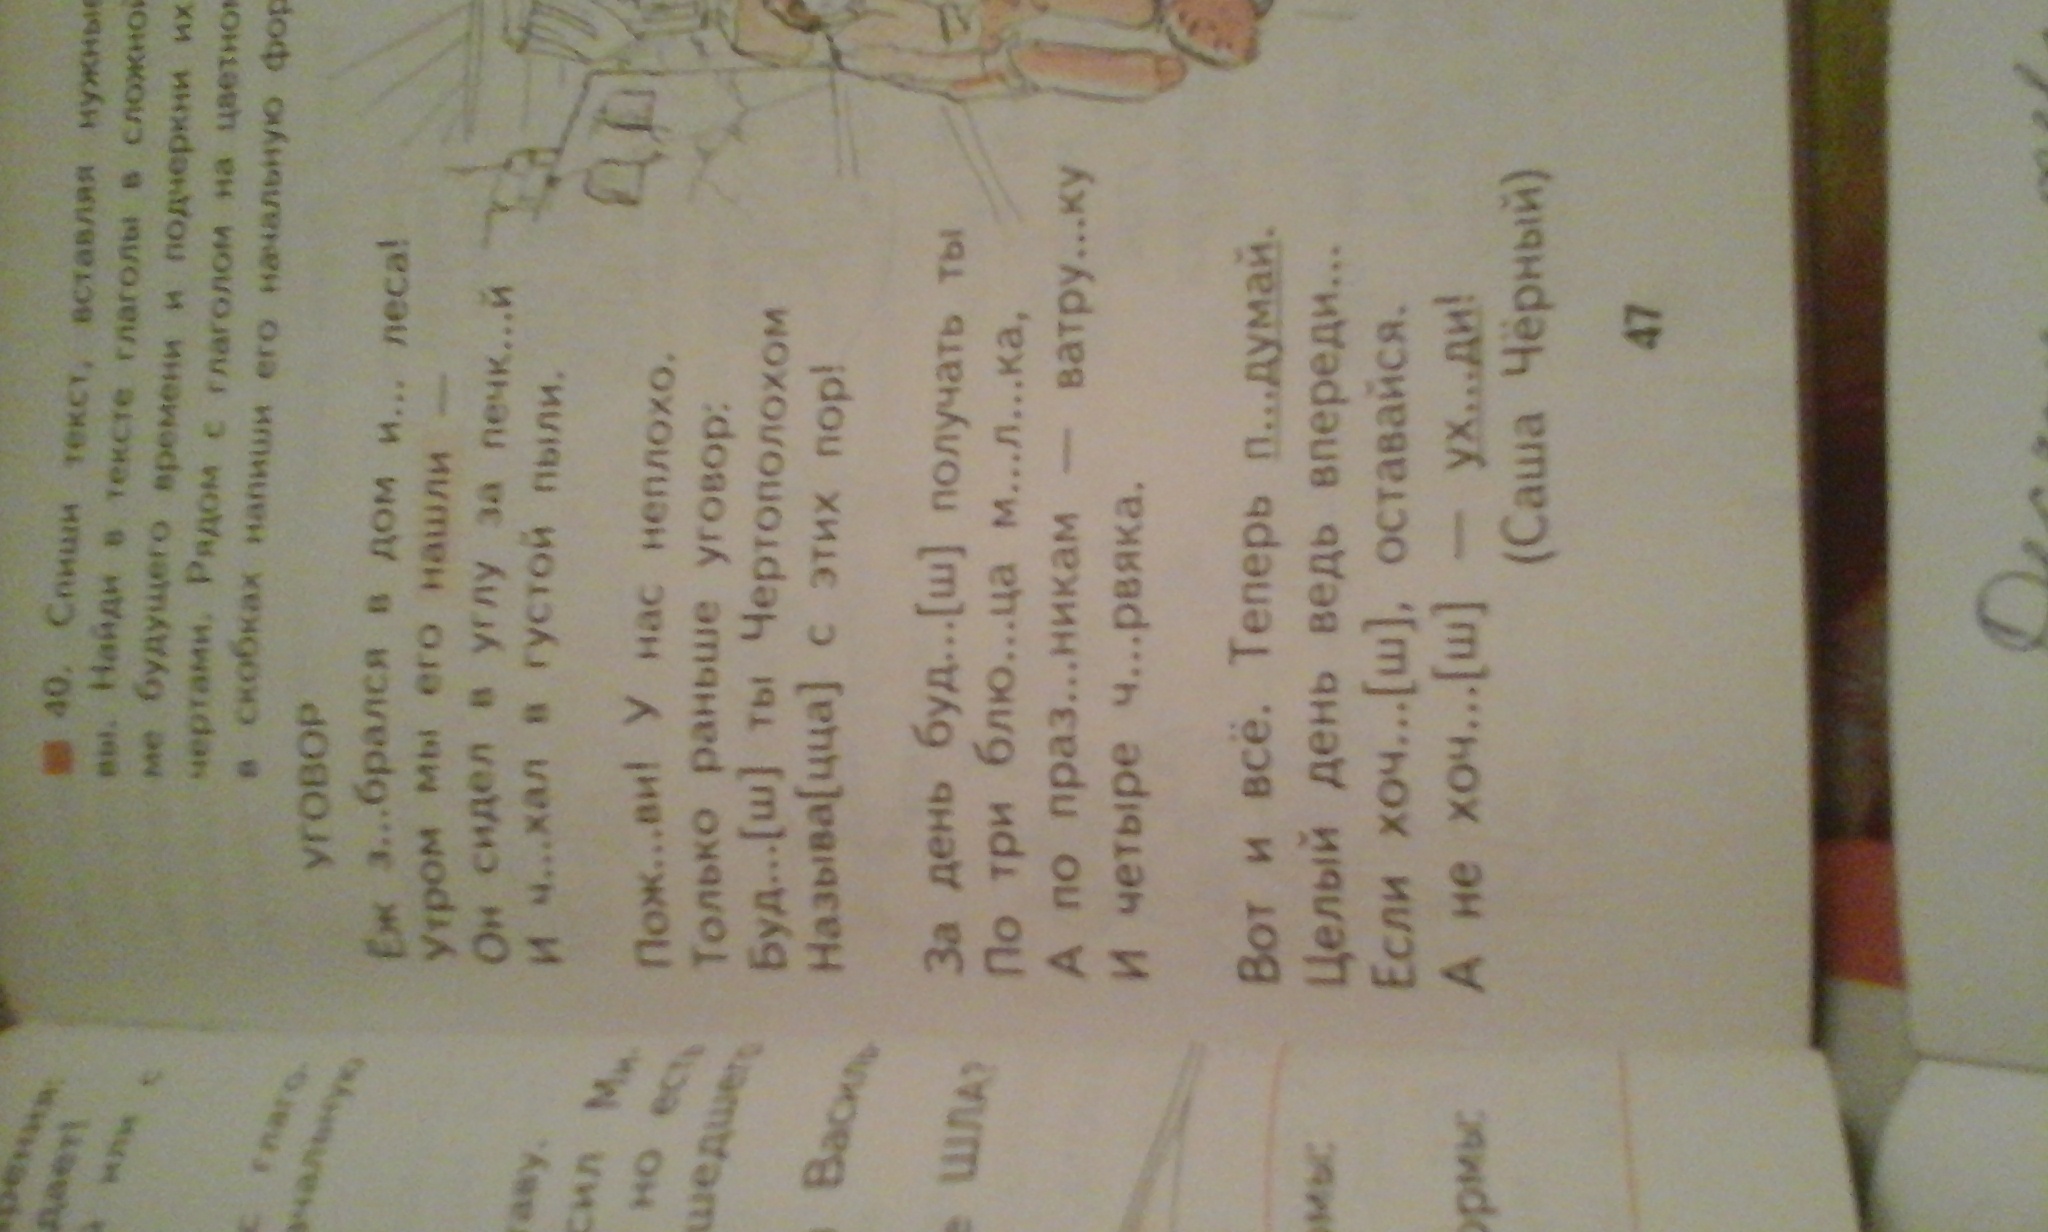 40. Спиши текст, вставляя нужные
вы. Найди в тексте глаголы в сложной
ме будущего времени и подчеркни их
чертами. Рядом с глаголом на цветном
в скобках напиши его начальную фор
УГОВОР
Ёж з...брался в дом и... леса!
Утром мы его нашли —
Он сидел в углу за печк...й
И ч...хал в густой пыли.
Пож...ви! У нас неплохо.
Только раньше уговор:
Буд...[ш] ты Чертополохом
Называ[цца] с этих пор!
За день буд...[ш] получать ты
По три блю...ца м...л...ка,
А по праз...никам — ватру...ку
И четыре ч...рвяка.
Вот и всё. Теперь п...думай.
Целый день ведь впереди...
Если хоч...[ш], оставайся.
А не хоч...[ш] — ух...ди!
(Саша Чёрный)
47
рения:
дает!
или с
с глаго-
ачальную
таву.
сил Ми
но есть
шедшего
Василь
е ШЛА?
рмы:
ормы: